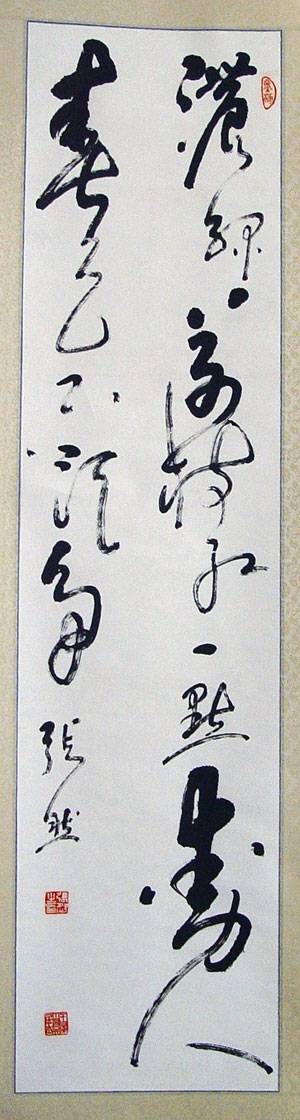 濃綠萬枝紅一點動人
春色不須多
張然